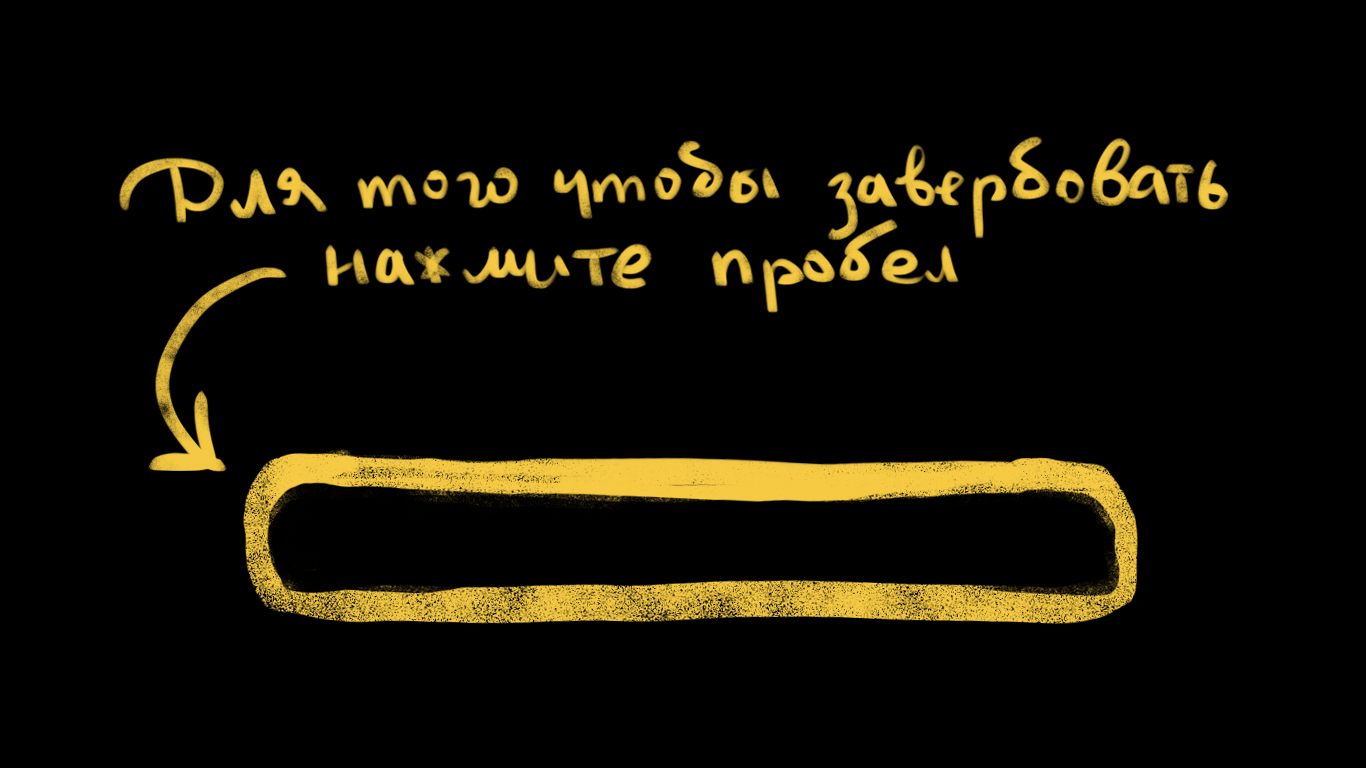 Для того чтобы завербовать
нажмите пробел